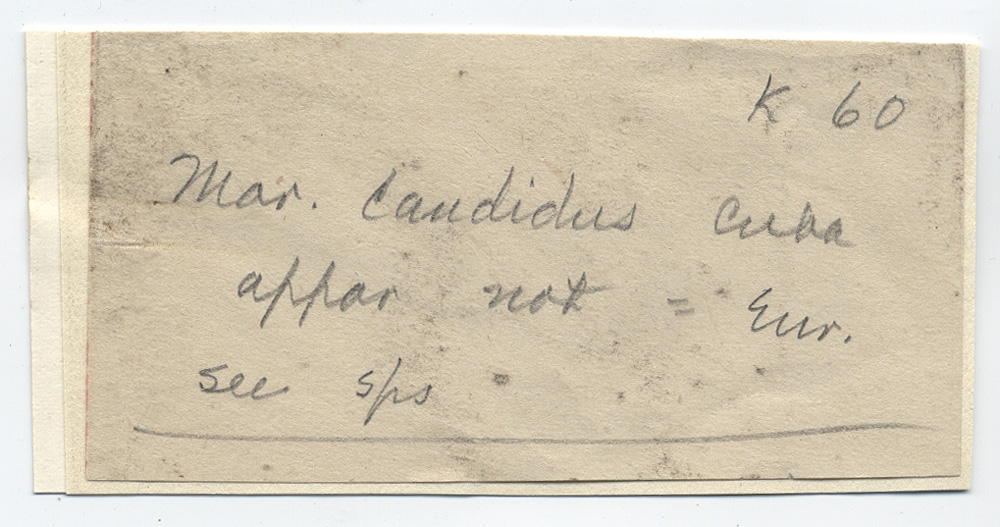 K 60
Mar. Candidus Cuba
appar not = Eur.
see sps